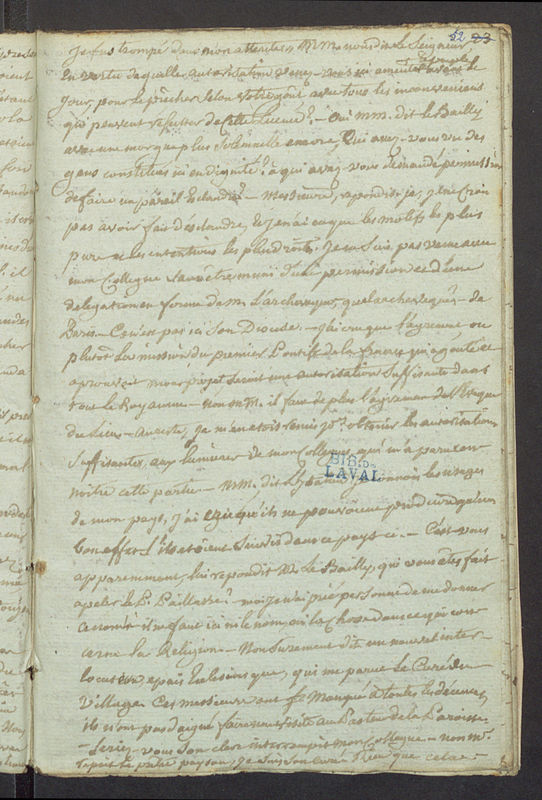 52 23
je fus trompé dans mon attente. MM. nous dit le Seigneur
En vertu de quelle autorisation venez-vous ici ameuter le
jour, pour le prêcher selon votre goût avec tous les inconveniens
qui peuvent resulter de cette licence? - Oui MM. dit le Bailly
avec une morgue plus solemnelle encore, Qui avez-vous vu des
gens constitués ici en dignité? à qui avez-vous demandé permission
de faire un pareil Esclandre? - Messieurs, repondis-je, je ne crois
pas avoir fait d'esclandre, et je n'ai eu que les motifs les plus
purs et les intentions les plus droites. Je ne suis pas venu avec
mon Collegue sans être muni d'une permission et d'une
delegation en forme de M. l'archeveque. quel archevêque? - de
Paris - Ce n'est pas ici son Diocese. - J'ai cru que l'agrement, ou
plutôt la mission du premier Pontife de la france qui a gouté et
approuvé mon projet seroit une autorisation suffisante dans
tout le Royaume - Non M. il faut de plus l'agrement de l'Eveque
du lieu - ensuite, je m'en étois remis pour obtenir les autorisations
suffisantes, aux lumieres de mon Collegue, qui m'a paru con-
noitre cette partie - MM. dit le je connois les usages
de mon pays, j'ai cru qu'ils ne pouvoient produire qu'un
bon effet s'ils etoient suivis dans ce pays ci. - C'est vous
apparemment, lui repondit M. le Bailly, qui vous êtes fait
apeler le P. Paillasse? - moi je n'ai prié personne de me donner
ce nom; il ne faut ici ni le nom, ni la chose dans ce qui con-
cerne la Religion - Non surement dit un nouvel inter-
locuteur espece Ecclesiastique, qui me parut le Curé du
Village. Ces messieurs ont manqué à toutes les décences,
ils n'ont pas daigné faire une visite au Pasteur de la Paroisse.
- Seriez-vous son clerc interrompit mon Collegue - non Mr
reprit le petit paysan, je suis son curé - Rien que cela -
BIB. DE
LAVAL